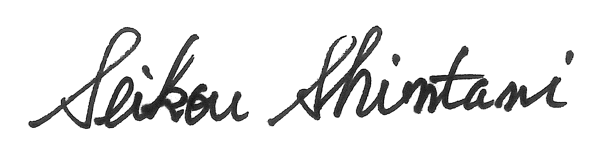 Seikou Shimtani